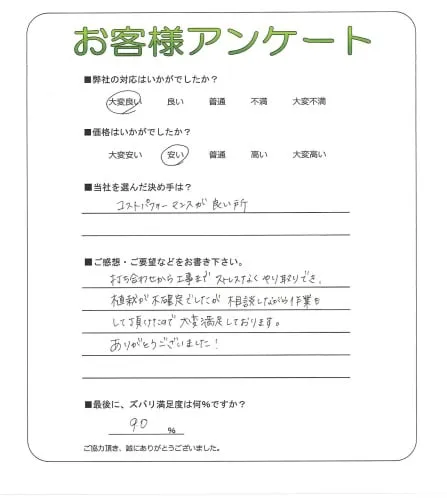 お客様アンケート
■弊社の対応はいかがでしたか？
大変良い 良い 普通 不満 大変不満
■価格はいかがでしたか？
大変安い 安い 普通 高い 大変高い
■当社を選んだ決め手は？
コストパフォーマンスが良い所
■ご感想・ご要望などをお書き下さい。
打ち合わせから工事までストレスなくやり取りでき、
植栽が不確定でしたが相談しながら作業を
して頂けたので大変満足しております。
ありがとうございました！
■最後に、ズバリ満足度は何%ですか？
90 %
ご協力頂き、誠にありがとうございました。